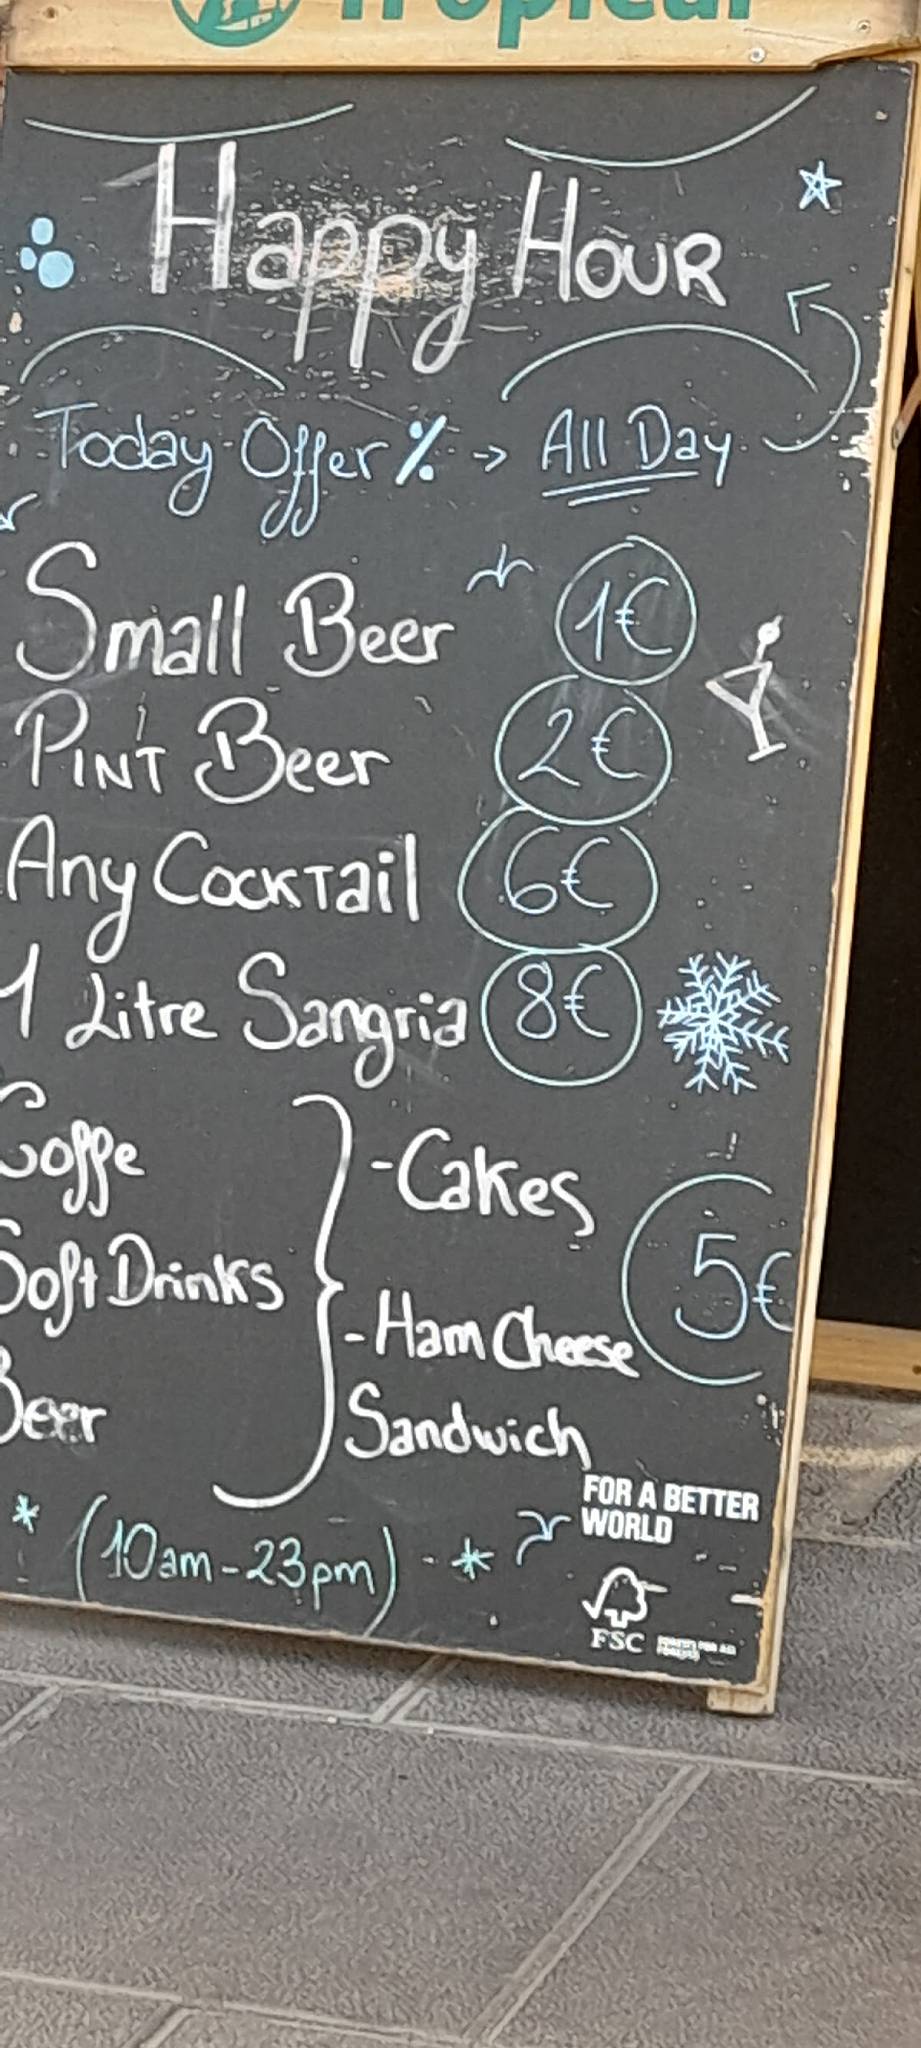 Tropical
Happy Hour
Today Offer % -> All Day
Small Beer 1€
PINT Beer 2€
Any Cocktail 6€
1 Litre Sangria 8€
Coffe
Soft Drinks
Beer
- Cakes
- Ham Cheese
Sandwich
5€
* (10am - 23pm) - *
FOR A BETTER
WORLD
FSC